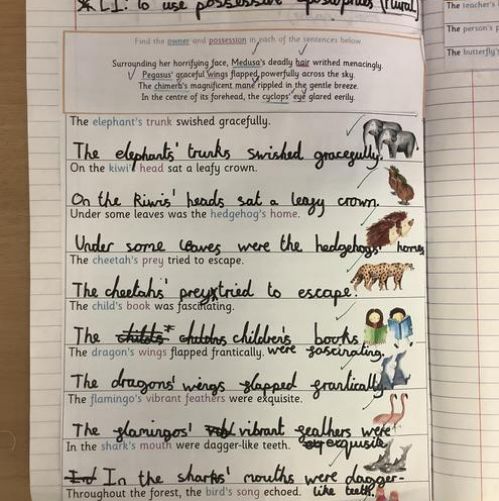 * L.I: To use possessive apostrophes (plural)
The teacher's
The person's p
The butterfly's
Find the owner and possession in each of the sentences below
Surrounding her horrifying face, Medusa's deadly hair writhed menacingly.
Pegasus' graceful wings flapped powerfully across the sky.
The chimera's magnificent mane rippled in the gentle breeze.
In the centre of its forehead, the cyclops' eye glared eerily.
The elephant's trunk swished gracefully.
The elephants' trunks swished gracefully.
On the kiwi' head sat a leafy crown.
On the Kiwis' heads sat a leafy crown.
Under some leaves was the hedgehog's home.
Under some leaves were the hedgehogs' homes
The cheetah's prey tried to escape.
The cheetahs' prey tried to escape.
The child's book was fascinating.
The children's books
were fascinating.
The dragon's wings flapped frantically.
The dragons' wings flapped frantically.
The flamingo's vibrant feathers were exquisite.
The flamingos' vibrant feathers were
exquisite
In the shark's mouth were dagger-like teeth.
In the sharks' mouths were dagger-
like teeth.
Throughout the forest, the bird's song echoed.